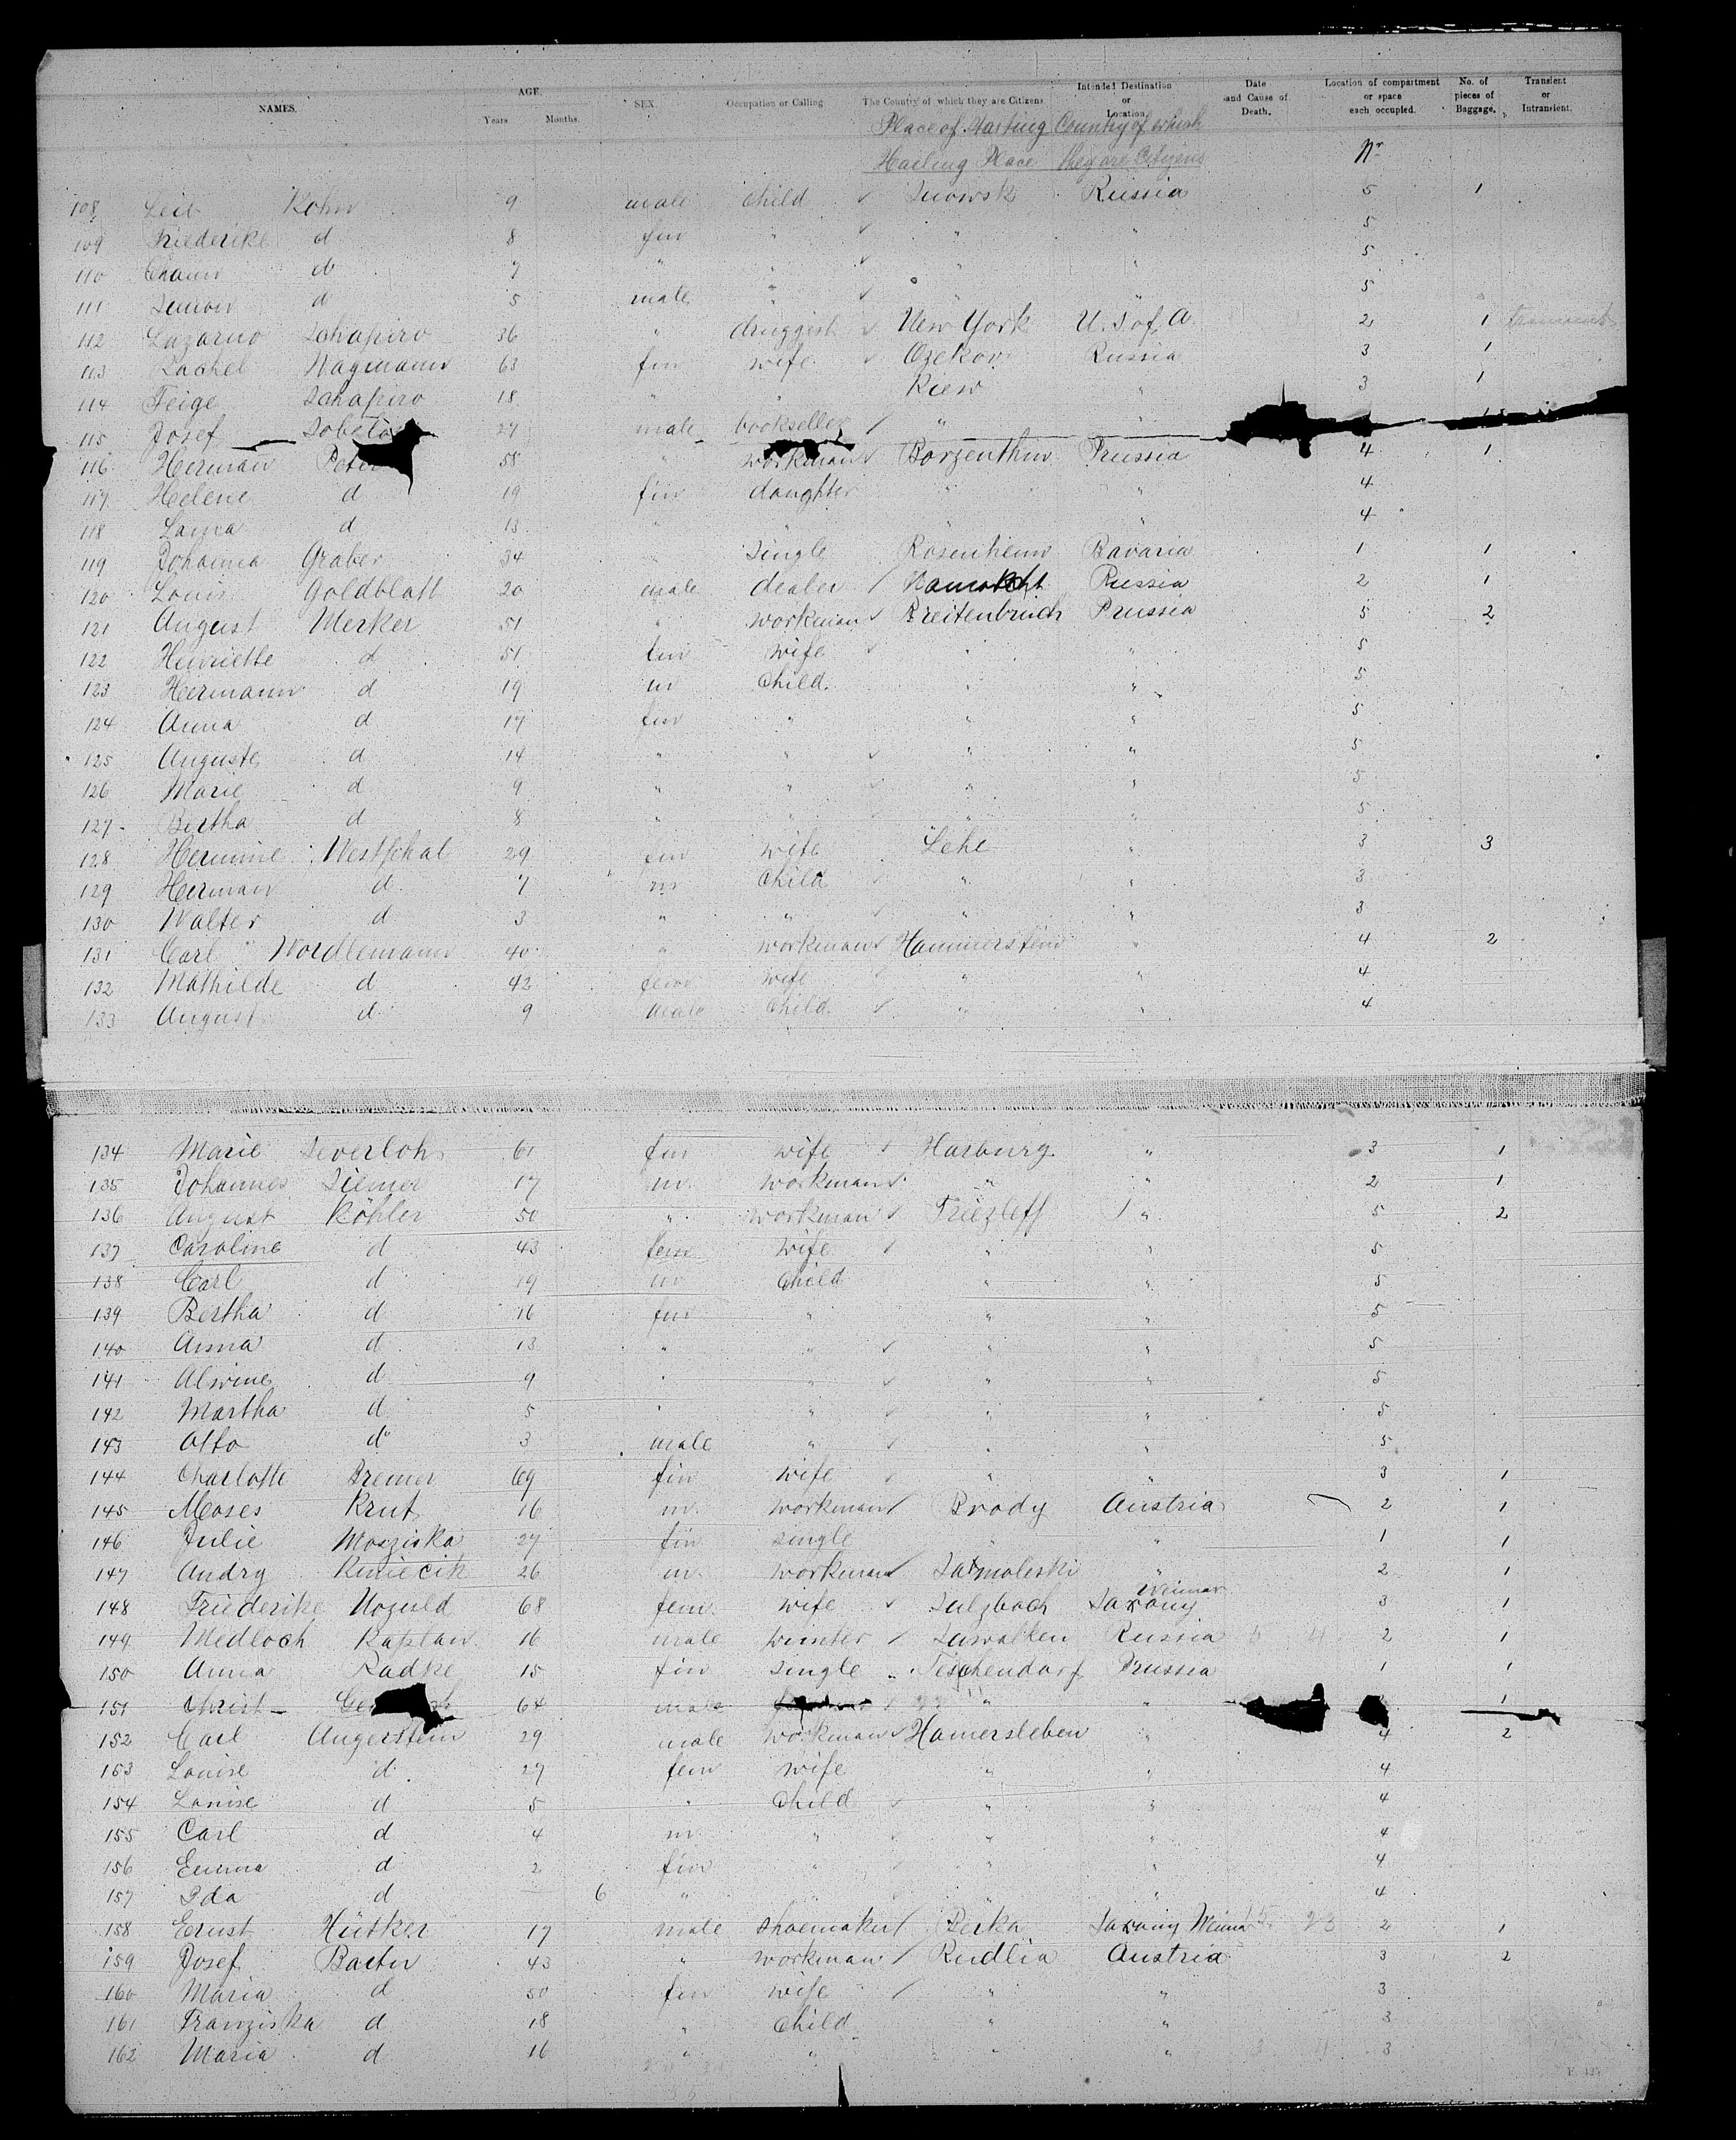 NAMES. AGE. SEX. Occupation or Calling The Country of which they are Citizens Intended Destination or Location, Date and Cause of Death, Location of compartment or space each occupied. No. of pieces of Baggage, Transient or Intransient.
Years Months.
Place of Starting Country of which
Hailing Place they are Citizens Nr
108 Leib Kohn 9 male child ✓ Russia 5 1
109 Friederike d 8 fem " ✓ " " 5
110 d 7 " " ✓ " " 5
111 Simon d 5 male " ✓ " " 5
112 Lazarus Schapiro 36 " druggist ✓ New York U. S of A. 2 1
113 Rachel Wagmann 63 fem wife ✓ Ozekow Russia 3 1
114 Feige Schapiro 18 " " Kiew " 3 1
115 Josef 27 male bookseller ✓ " "
116 Herman Peter 58 " workman ✓ Borzenthin Prussia 4 1
117 Helene d 19 fem daughter " " 4
118 d 13 " " " " 4
119 Johanna Graber 34 single Rosenheim Bavaria 1 1
120 Louis Goldblatt 20 male dealer ✓ Russia 2 1
121 August Merker 51 " workman ✓ Breitenbruch Prussia 5 2
122 Henriette d 51 fem wife ✓ " " 5
123 Hermann d 19 m child. " " 5
124 Anna d 17 fem " " " 5
125 Auguste d 14 " " ✓ " " 5
126 Marie d 9 " " ✓ " " 5
127 Bertha d 8 " " ✓ " " 5
128 Hermine Westphal 29 fem wife Lehe " 3 3
129 Herman d 7 m child ✓ " " 3
130 Walter d 3 " " ✓ " " 3
131 Carl Wordlemann 40 " workman ✓ Hammerstein " 4 2
132 Mathilde d 42 fem wife ✓ " " 4
133 August d 9 male child ✓ " " 4
134 Marie Severloh 61 fem wife ✓ Harburg " 3 1
135 Johannes Siemer 17 m. workman ✓ " " 2 1
136 August Köhler 50 " workman ✓ Triezleff " 5 2
137 Caroline d 43 fem wife ✓ " " 5
138 Carl d 19 m child " " 5
139 Bertha d 16 fem " " " 5
140 Anna d 13 " " ✓ " " 5
141 Alwine d 9 " " ✓ " " 5
142 Martha d 5 " " ✓ " " 5
143 Otto do 3 male " ✓ " " 5
144 Charlotte Bremer 69 fem wife ✓ " " 3 1
145 Moses Krut 16 m. workman ✓ Brody Austria 2 1
146 Julie Mosziska 27 fem single " " 1 1
147 Andry Kwiecik 26 m. workman ✓ " 2 1
148 Friederike 68 fem. wife ✓ Sulzbach Saxony Weimar 3 1
149 Medloch Kaplan 16 male ✓ Suwalken Russia 2 1
150 Anna Radke 15 fem single Tischendorf Prussia 1 1
151 Christ 64 male ✓ " " 1
152 Carl Angerstein 29 male workman ✓ Hamersleben " 4 2
153 Louise d 27 fem wife " " 4
154 Louise d 5 " child ✓ " " 4
155 Carl d 4 m. " ✓ " " 4
156 Emma d 2 fem " " " 4
157 Ida d 6 " " " " 4
158 Ernst Hütker 17 male shoemaker ✓ Berka Saxony Weimar 2 1
159 Josef 43 " workman ✓ Rudlia Austria 3 2
160 Maria d 50 fem wife ✓ " " 3
161 Franziska d 18 " child " " 3
162 Maria d 16 " " " " 3